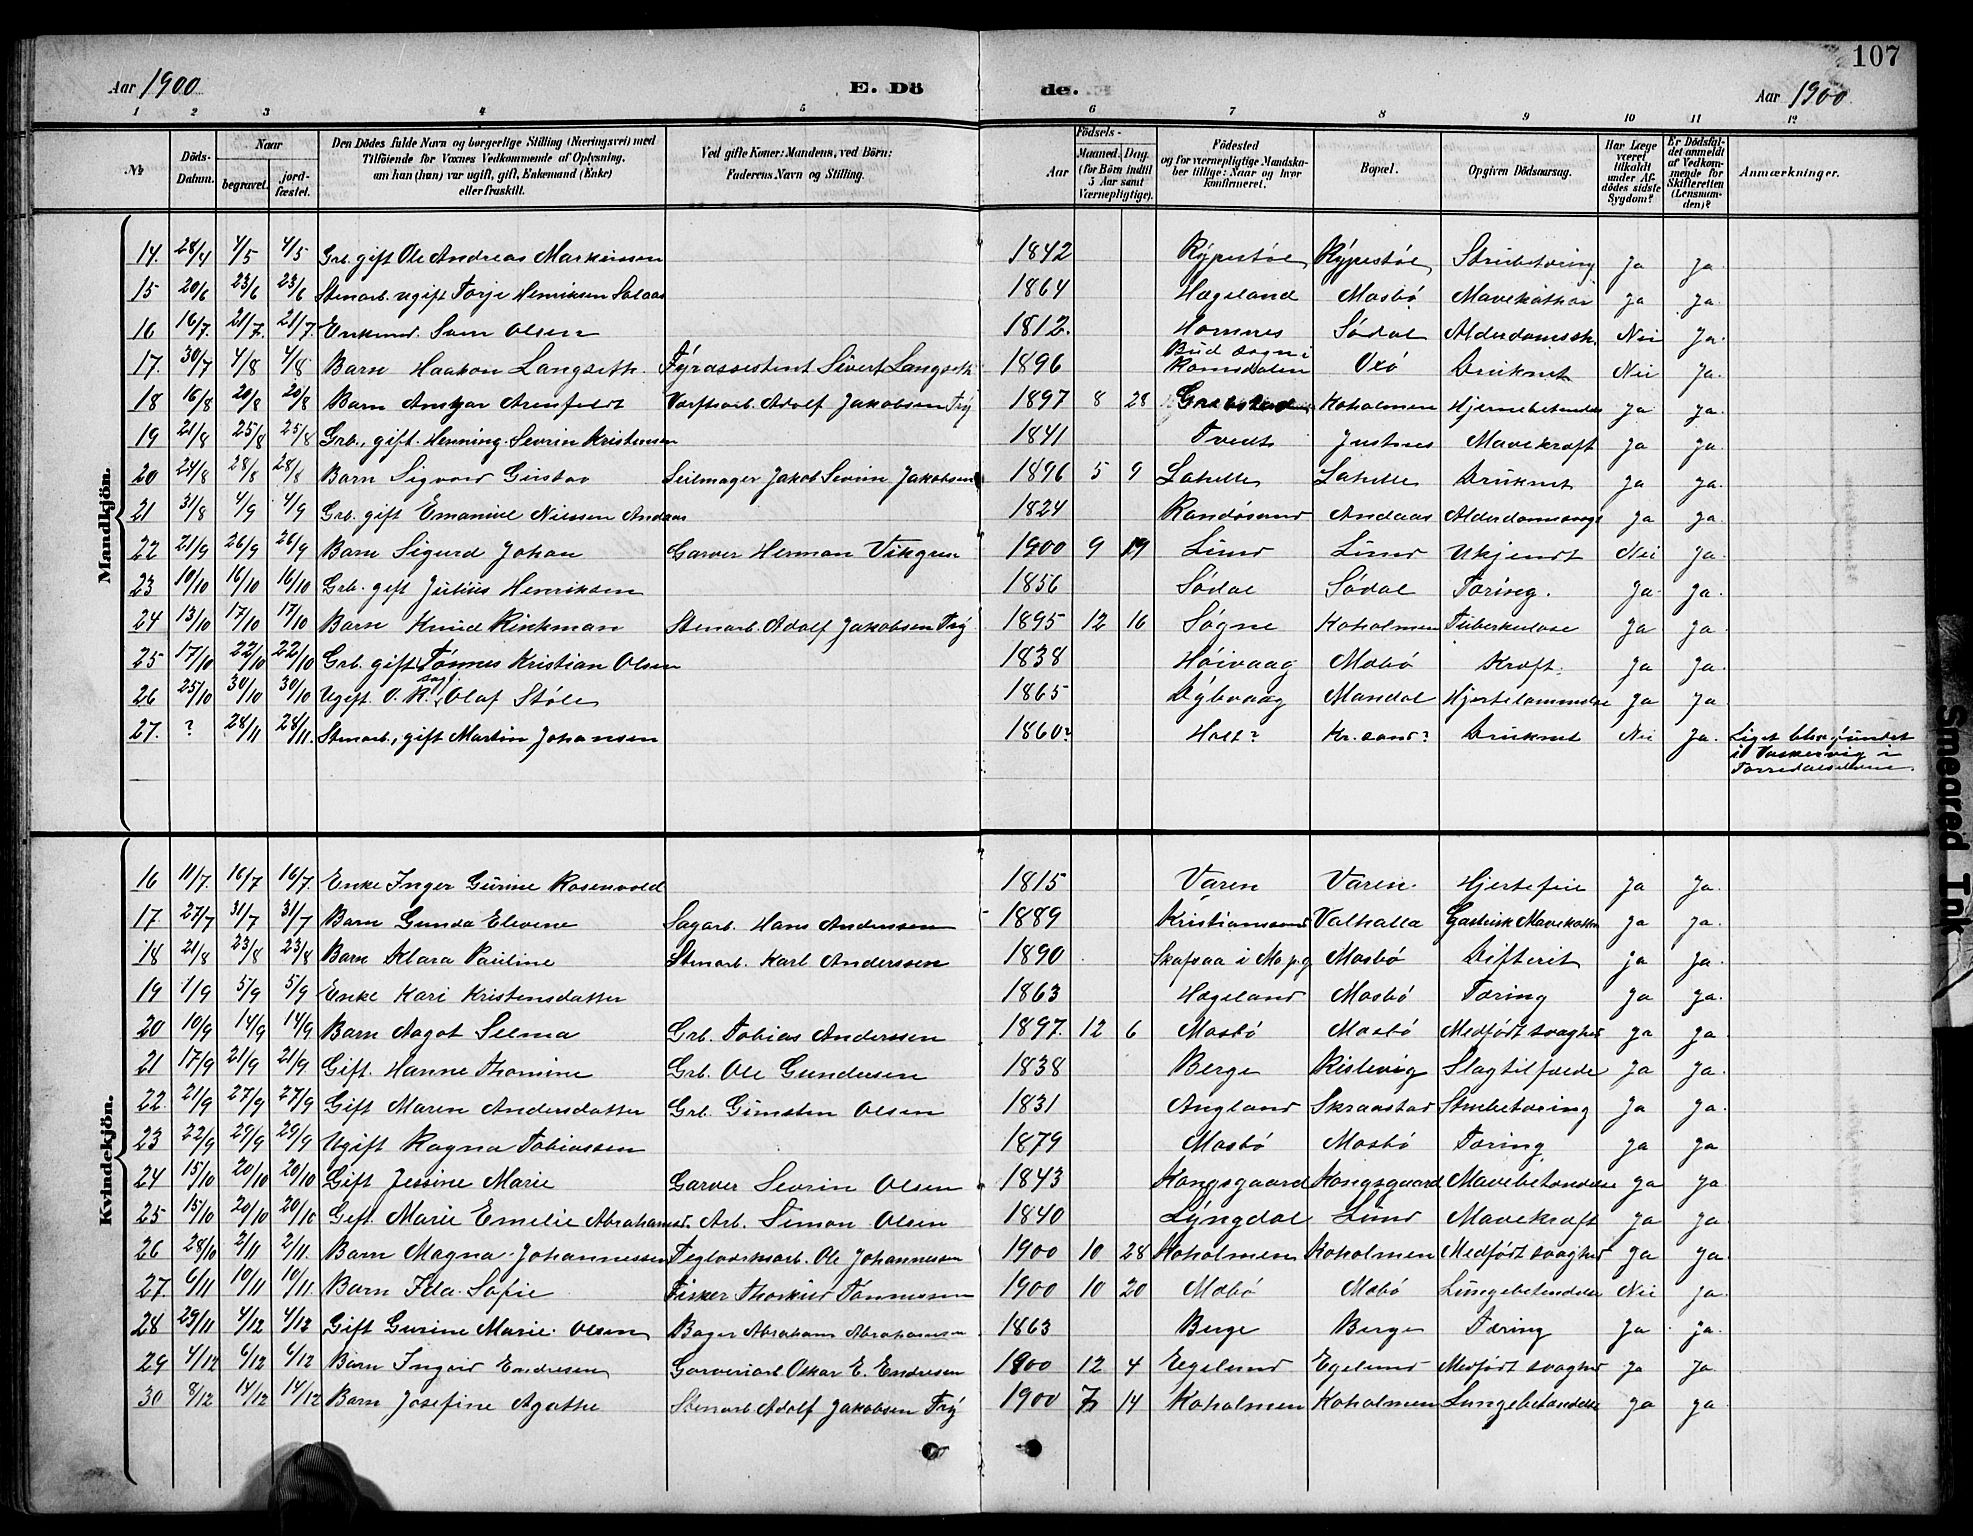 107
Aar 1900 E. Dö de. Aar 1900
1 2 3 4 5 6 7 8 9 10 11 12
№
Döds-Datum.
Naar
begravet.
jord-fæstet.
Den Dödes fulde Navn og borgerlige Stilling (Næringsvei) med
Tilföiende for Voxnes Vedkommende af Oplysning,
om han (hun) var ugift, gift, Enkemand (Enke)
eller fraskilt.
Ved gifte Koner: Mandens, ved Börn:
Faderens Navn og Stilling.
Födsels-
Aar
Maaned. Dag.
(for Börn indtil
5 Aar samt
Værnepligtige).
Födested
og for værnepligtige Mandska-
ber tillige: Naar og hvor
konfirmeret.
Bopæl.
Opgiven Dödsaarsag.
Har Læge
været
tilkaldt
under Af-
dödes sidste
Sygdom?
Er Dödsfal-
det anmeldt
af Vedkom-
mende for
Skifteretten
(Lensman-
den)?
Anmærkninger.
Mandkjön.
14. 28/4 4/5 4/5 Grb. gift Ole Andreas 1842 Rypestøl Rypestøl Strubetæring Ja Ja.
15 20/6 23/6 23/6 Stenarb. ugift Torje Henriksen 1864 Hægeland Mosbø Mavekathar Ja Ja.
16 16/7. 21/7. 21/7. Enkemd. Olsen 1812. Homnes Sødal Alderdomssv. Nei Ja.
17. 30/7 4/8 4/8 Barn Haakon Langseth. Fyrassistent Sivert Langseth 1896 Bud sogn i Romsdalen Oxø Druknet Nei Ja.
18 16/8 20/8 20/8 Barn Ansgar Arenfeldt Verftsarb. Adolf Jakobsen Try 1897 8 28 Koholmen Hjernebetændelse Ja Ja.
19 21/8 25/8 25/8 Grb., gift. Henning Sevrin Kristensen 1841 Tveit Justnes Mavekræft Ja Ja.
20 24/8 28/8 28/8 Barn Sigvard Gustav Seilmager Jakob Sevrin Jakobsen 1896 5 9 Lahelle Lahelle Druknet Ja Ja.
21 31/8 4/9 4/9 Grb. gift Emanuel Nilssen Andaas 1824 Randøsund Andaas Ja Ja.
22 21/9 26/9 26/9 Barn Sigurd Johan Garver Herman Vikgren 1900 9 19 Lund Lund Ukjendt Nei Ja.
23 10/10 16/10 16/10 Grb. gift Julius Henriksen 1856 Sødal Sødal Tæring. Ja Ja.
24 13/10 17/10 17/10 Barn Knud Rinkman Stenarb. Adolf Jakobsen Try 1895 12 16 Søgne Koholmen Tuberkulose Ja Ja.
25 17/10 22/10 22/10 Grb. gift Tønnes Kristian Olsen 1838 Høivaag Mosbø Kræft. Ja Ja.
26 25/10 30/10 30/10 Ugift. O. R. sagf. Olaf Støle 1865 Dybvaag Mandal Hjertelammelse Ja Ja
27. ? 28/11 28/11. Stenarb., gift Martin Johansen 1860? Holt? Kr. sand? Druknet Nei Ja. Liget blev fundet
i Vaskervig i
Torridalselven.
Kvindekjön.
16 11/7. 16/7 16/7. Enke Inger Gurine Rosenvold 1815 Varen Varen. Hjertefeil Ja Ja.
17. 27/7 31/7 31/7 Barn Gunda Elevene Sagarb. Hans Andersen 1889 Kristianssand Valhalla Gastrisk Mavekathar Ja Ja.
18 21/8 23/8 23/8 Barn Klara Pauline Stenarb. Karl Anderssen 1890 Skafsaa i Mo p.g Mosbø Difterit Ja Ja.
19 1/9 5/9 5/9 Enke Kari Kristensdatter 1863 Hægeland Mosbø Tæring Ja Ja.
20 10/9 14/9 14/9. Barn Aagot Selma Grb. Tobias Anderssen 1897. 12 6 Mosbø Mosbø Medført svaghed Ja Ja.
21 17/9 21/9 21/9 Gift. Hanne Thomine Grb. Ole Gundersen 1838 Berge Rislevig Slagtilfælde Ja Ja.
22. 21/9 27/9 27/9 Gift Maren Andersdatter Grb. Gunsten Olsen 1831 Augland Skraastad Strubetæring Ja Ja.
23 22/9 29/9 29/9 Ugift Ragna Tobiassen 1879 Mosbø Mosbø Tæring Ja Ja
24 15/10 20/10 20/10 Gift Jessine Marie Garver Sevrin Olsen 1843 Kongsgaard Kongsgaard Mavebetændelse Ja Ja
25 15/10 20/10 20/10 Gift Marie Emelie Abrahamsd. Arb. Simon Olsen 1840 Lyngdal Lund Mavekræft Ja Ja
26 28/10 2/11 2/11. Barn Magna Johannessen Teglværksarb. Ole Johannessen 1900 10 28 Koholmen Koholmen Medført svaghed Ja Ja.
27. 6/11 10/11 10/11. Barn Ida Sofie Fisker Thorkild Tønnessen 1900 10 20 Mosbø Mosbø Lungebetændelse Nei Ja.
28 29/11 4/12 4/12 Gift Gurine Marie Olsen Bager Abraham Abrahamsen 1863 Berge Berge Tæring Ja Ja.
29 4/12 6/12 6/12 Barn Ingrid Endresen Garveriarb Oskar E. Endresen 1900 12 4 Egelund Egelund Medført svaghed Ja Ja.
30 8/12 14/12 14/12 Barn Josefine Agathe Stenarb Adolf Jakobsen Try 1900 7 14 Koholmen Koholmen Lungebetændelse Ja Ja
Smeared Ink